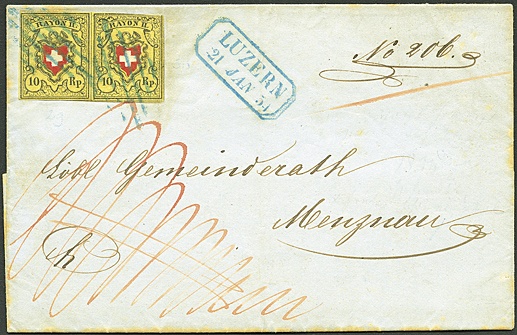 RAYON II.
10 Rp.
RAYON II.
10 Rp.
LUZERN
21 JAN 54
No 206.
Löbl Gemeinderath
Menznau
h